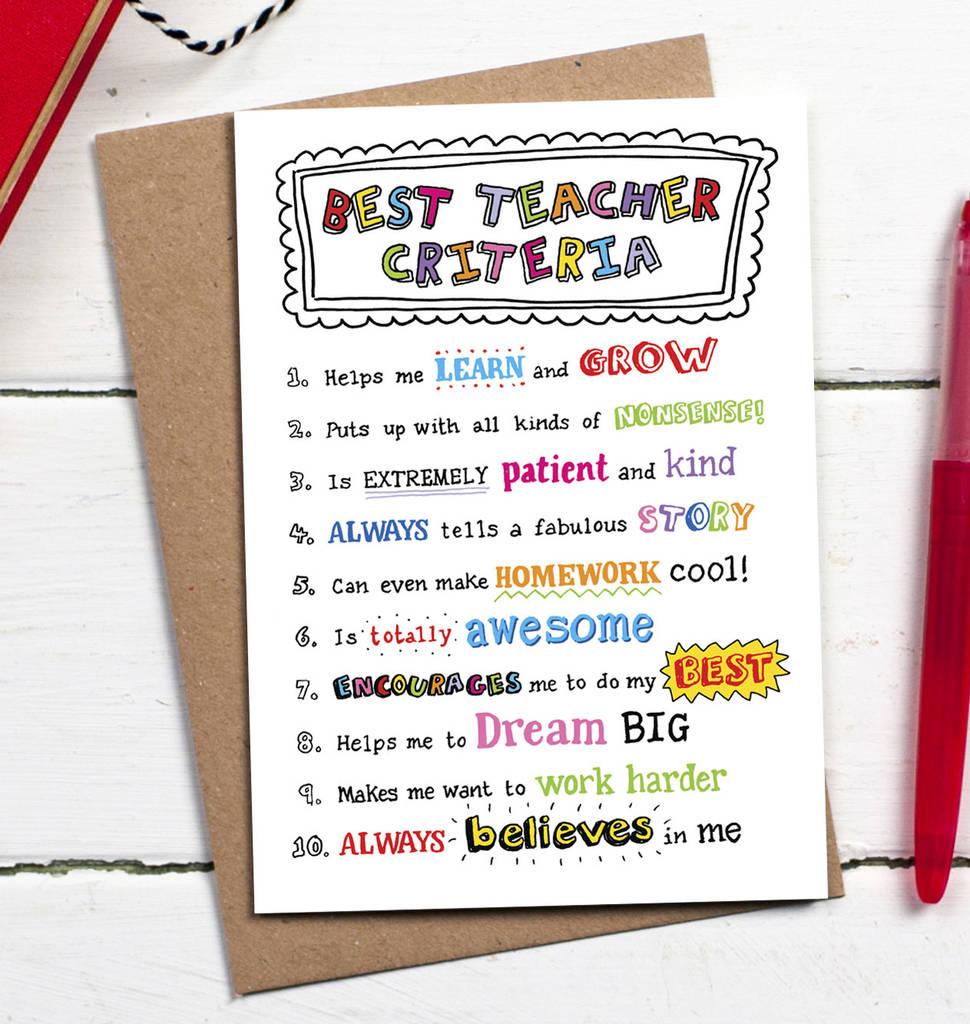 BEST TEACHER
CRITERIA
1. Helps me LEARN and GROW
2. Puts up with all kinds of NONSENSE!
3. Is EXTREMELY patient and kind
4. ALWAYS tells a fabulous STORY
5. Can even make HOMEWORK cool!
6. Is totally awesome
7. ENCOURAGES me to do my BEST
8. Helps me to Dream BIG
9. Makes me want to work harder
10. ALWAYS believes in me